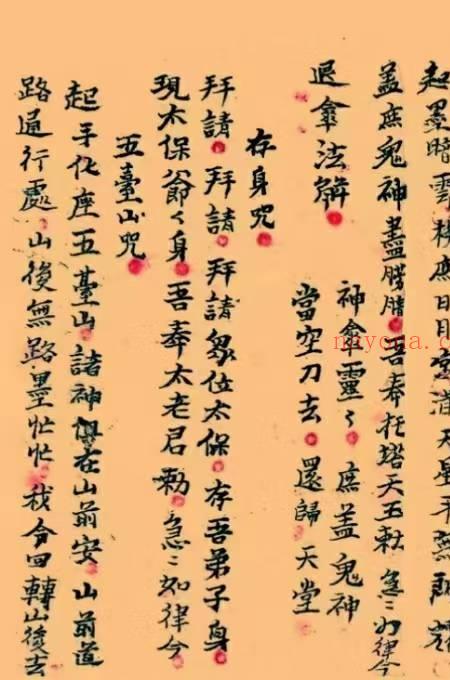 墨暗雲庶日天星
盖庶鬼神盡朦朧吾奉托塔天王敕急々如律令
退傘法解
神傘靈々庶盖鬼神
當空刀去還歸天堂
存身咒
拜請拜請拜請眾位太保存吾弟子身
現太保爺々身吾奉太老君勅急々如律令
五臺山咒
起手化座五臺山諸神俱在山前安山前道
路通行處山後無路墨忙忙我今回轉山後去